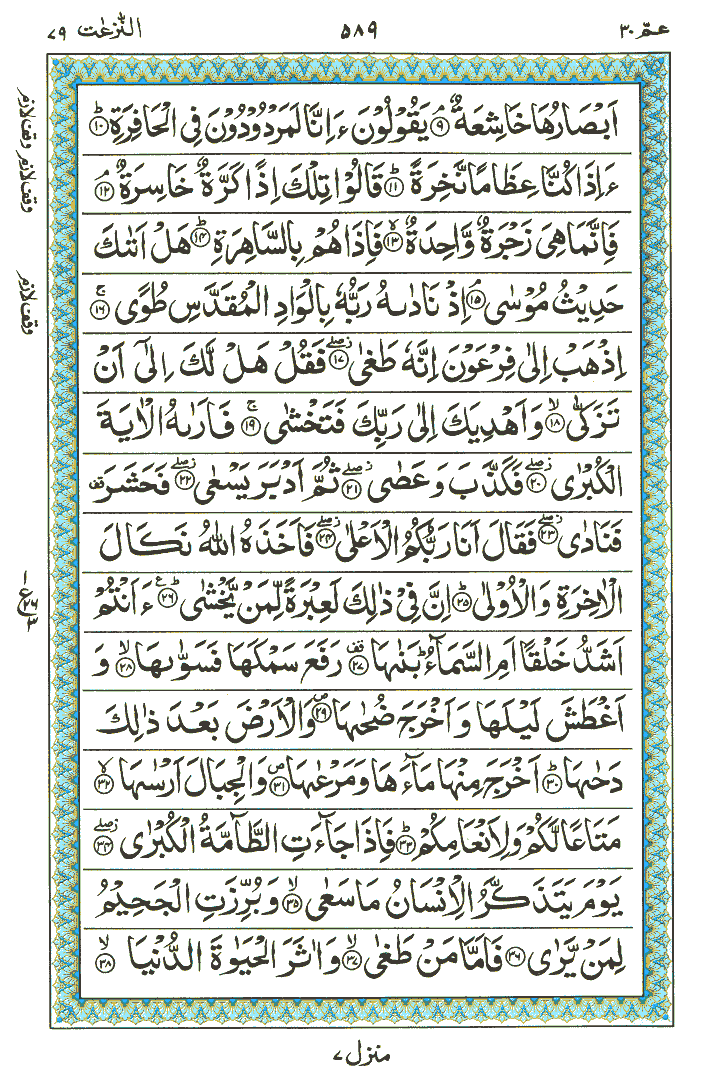 عمّ ٣٠ ٥٨٩ النّٰزعٰت ٧٩
اَبْصَارُهَا خَاشِعَةٌ ۘ﴿٩﴾ يَقُوْلُوْنَ ءَاِنَّا لَمَرْدُوْدُوْنَ فِى الْحَافِرَةِ ؕ﴿١٠﴾
ءَاِذَا كُنَّا عِظَامًا نَّخِرَةً ؕ﴿١١﴾ قَالُوْا تِلْكَ اِذًا كَرَّةٌ خَاسِرَةٌ ۘ﴿١٢﴾
فَاِنَّمَا هِىَ زَجْرَةٌ وَّاحِدَةٌ ۙ﴿١٣﴾ فَاِذَا هُمْ بِالسَّاهِرَةِ ؕ﴿١٤﴾ هَلْ اَتٰىكَ
حَدِيْثُ مُوْسٰى ۘ﴿١٥﴾ اِذْ نَادٰىهُ رَبُّهٗ بِالْوَادِ الْمُقَدَّسِ طُوًى ۚ﴿١٦﴾
اِذْهَبْ اِلٰى فِرْعَوْنَ اِنَّهٗ طَغٰى ۖ﴿١٧﴾ فَقُلْ هَلْ لَّكَ اِلٰٓى اَنْ
تَزَكّٰى ۙ﴿١٨﴾ وَاَهْدِيَكَ اِلٰى رَبِّكَ فَتَخْشٰى ۚ﴿١٩﴾ فَاَرٰىهُ الْاٰيَةَ
الْكُبْرٰى ۖ﴿٢٠﴾ فَكَذَّبَ وَعَصٰى ۖ﴿٢١﴾ ثُمَّ اَدْبَرَ يَسْعٰى ۖ﴿٢٢﴾ فَحَشَرَ قف
فَنَادٰى ۖ﴿٢٣﴾ فَقَالَ اَنَا رَبُّكُمُ الْاَعْلٰى ۖ﴿٢٤﴾ فَاَخَذَهُ اللّٰهُ نَكَالَ
الْاٰخِرَةِ وَالْاُوْلٰى ؕ﴿٢٥﴾ اِنَّ فِىْ ذٰلِكَ لَعِبْرَةً لِّمَنْ يَّخْشٰى ؕ﴿٢٦﴾ ع ءَاَنْتُمْ
اَشَدُّ خَلْقًا اَمِ السَّمَآءُ ؕ بَنٰىهَا قف﴿٢٧﴾ رَفَعَ سَمْكَهَا فَسَوّٰىهَا ۙ﴿٢٨﴾ وَ
اَغْطَشَ لَيْلَهَا وَاَخْرَجَ ضُحٰىهَا ص﴿٢٩﴾ وَالْاَرْضَ بَعْدَ ذٰلِكَ
دَحٰىهَا ؕ﴿٣٠﴾ اَخْرَجَ مِنْهَا مَآءَهَا وَمَرْعٰىهَا ص﴿٣١﴾ وَالْجِبَالَ اَرْسٰىهَا ۙ﴿٣٢﴾
مَتَاعًا لَّكُمْ وَلِاَنْعَامِكُمْ ؕ﴿٣٣﴾ فَاِذَا جَآءَتِ الطَّآمَّةُ الْكُبْرٰى ۖ﴿٣٤﴾
يَوْمَ يَتَذَكَّرُ الْاِنْسَانُ مَا سَعٰى ۙ﴿٣٥﴾ وَبُرِّزَتِ الْجَحِيْمُ
لِمَنْ يَّرٰى ﴿٣٦﴾ فَاَمَّا مَنْ طَغٰى ۙ﴿٣٧﴾ وَاٰثَرَ الْحَيٰوةَ الدُّنْيَا ۙ﴿٣٨﴾
وقف لازم
وقف لازم
وقف لازم
١ ع ٢٦ ٣
منزل ٧